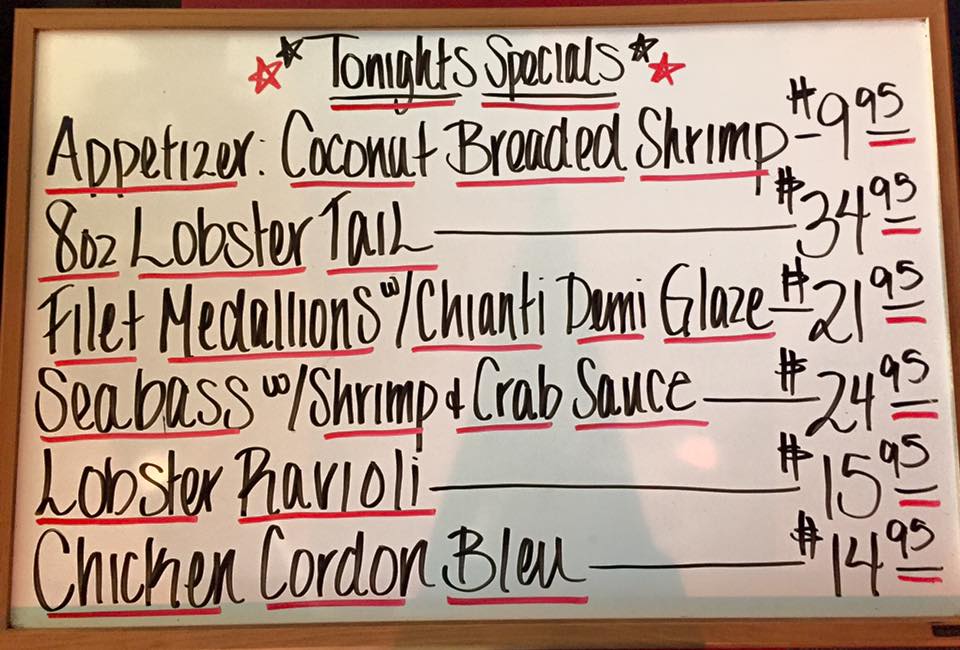 Tonights Specials
Appetizer: Coconut Breaded Shrimp - $9.95
8oz Lobster Tail — $34.95
Filet Medallions w/Chianti Demi Glaze - $21.95
Seabass w/Shrimp & Crab Sauce — $24.95
Lobster Ravioli — $15.95
Chicken Cordon Bleu — $14.95